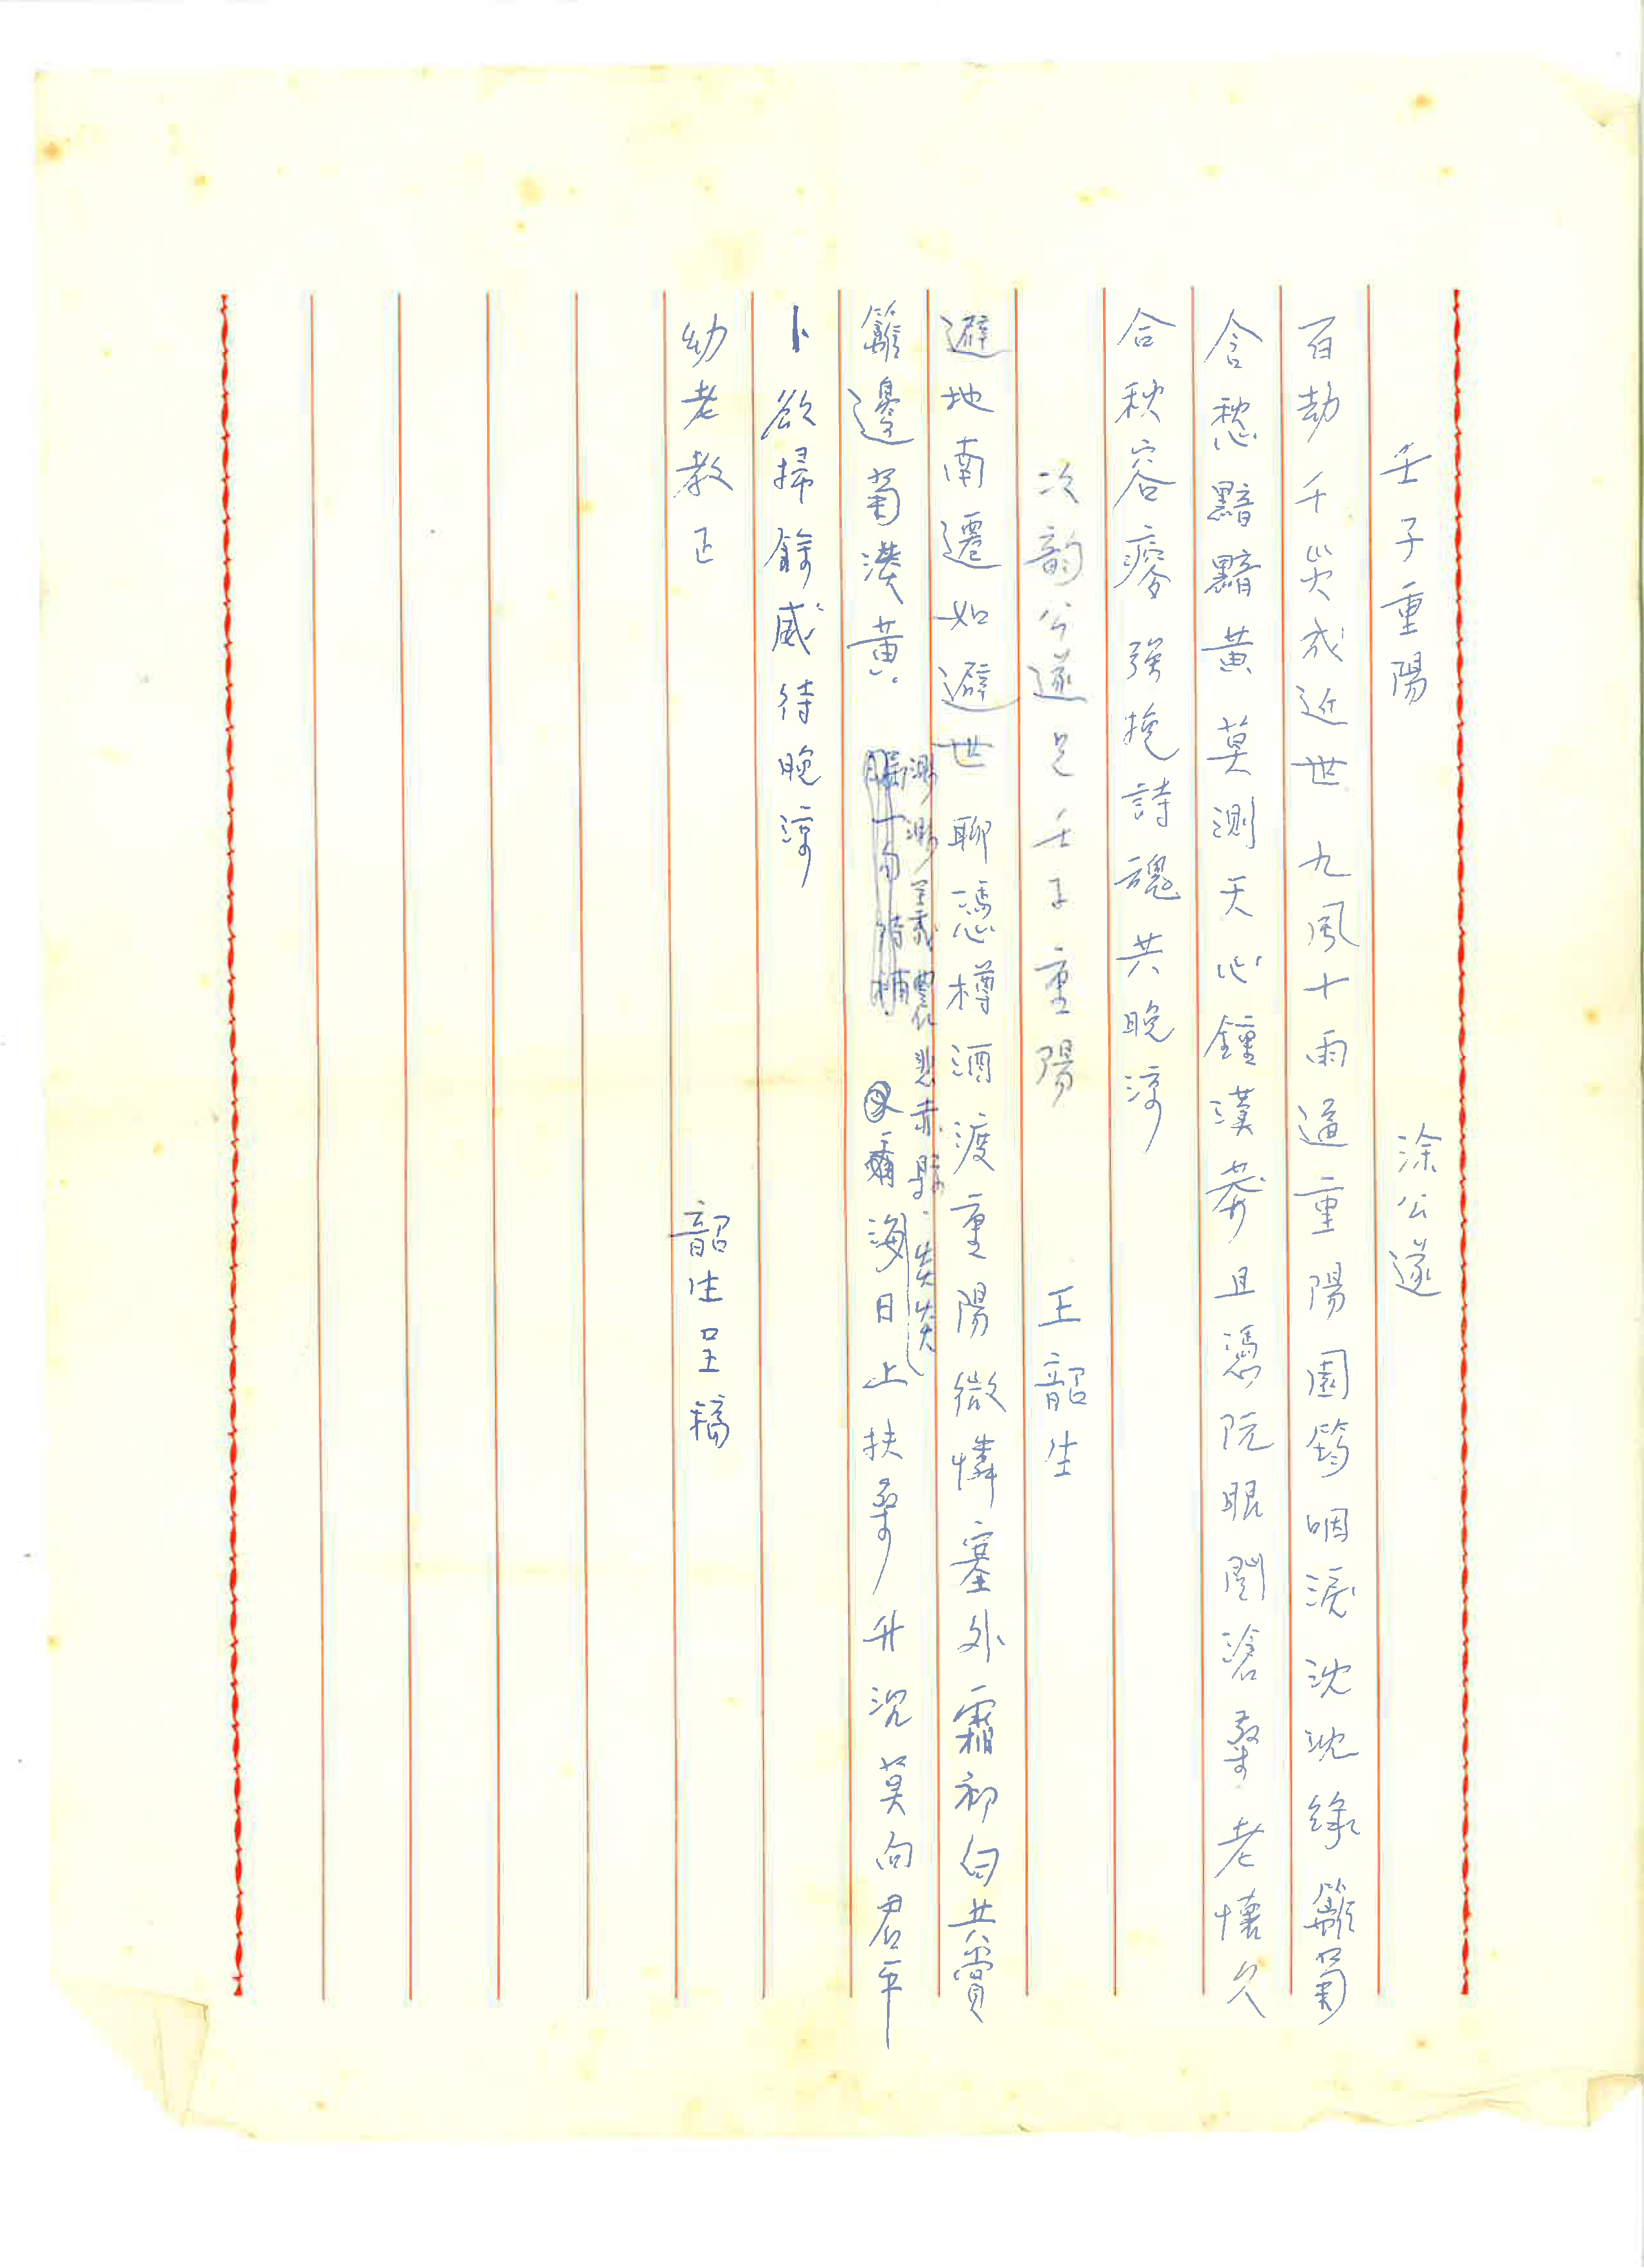 壬子重陽　涂公遂
百劫千災成近世九風十雨逼重陽園筠咽淚沈沈綠籬菊
含愁黯黯黃莫測天心鍾莽且憑阮眼閱滄桑老懷久
合秋容瘠強挽詩魂共晚涼
次韵公遂兄壬子重陽　王韶生
避地南遷如避世聊憑樽酒渡重陽微憐塞外霜初白共賞
籬邊菊淡黃渺渺羲農悲赤縣炎炎海日上扶桑升沉莫向君平
卜欲掃餘威待晚涼
幼老教正　韶生呈稿